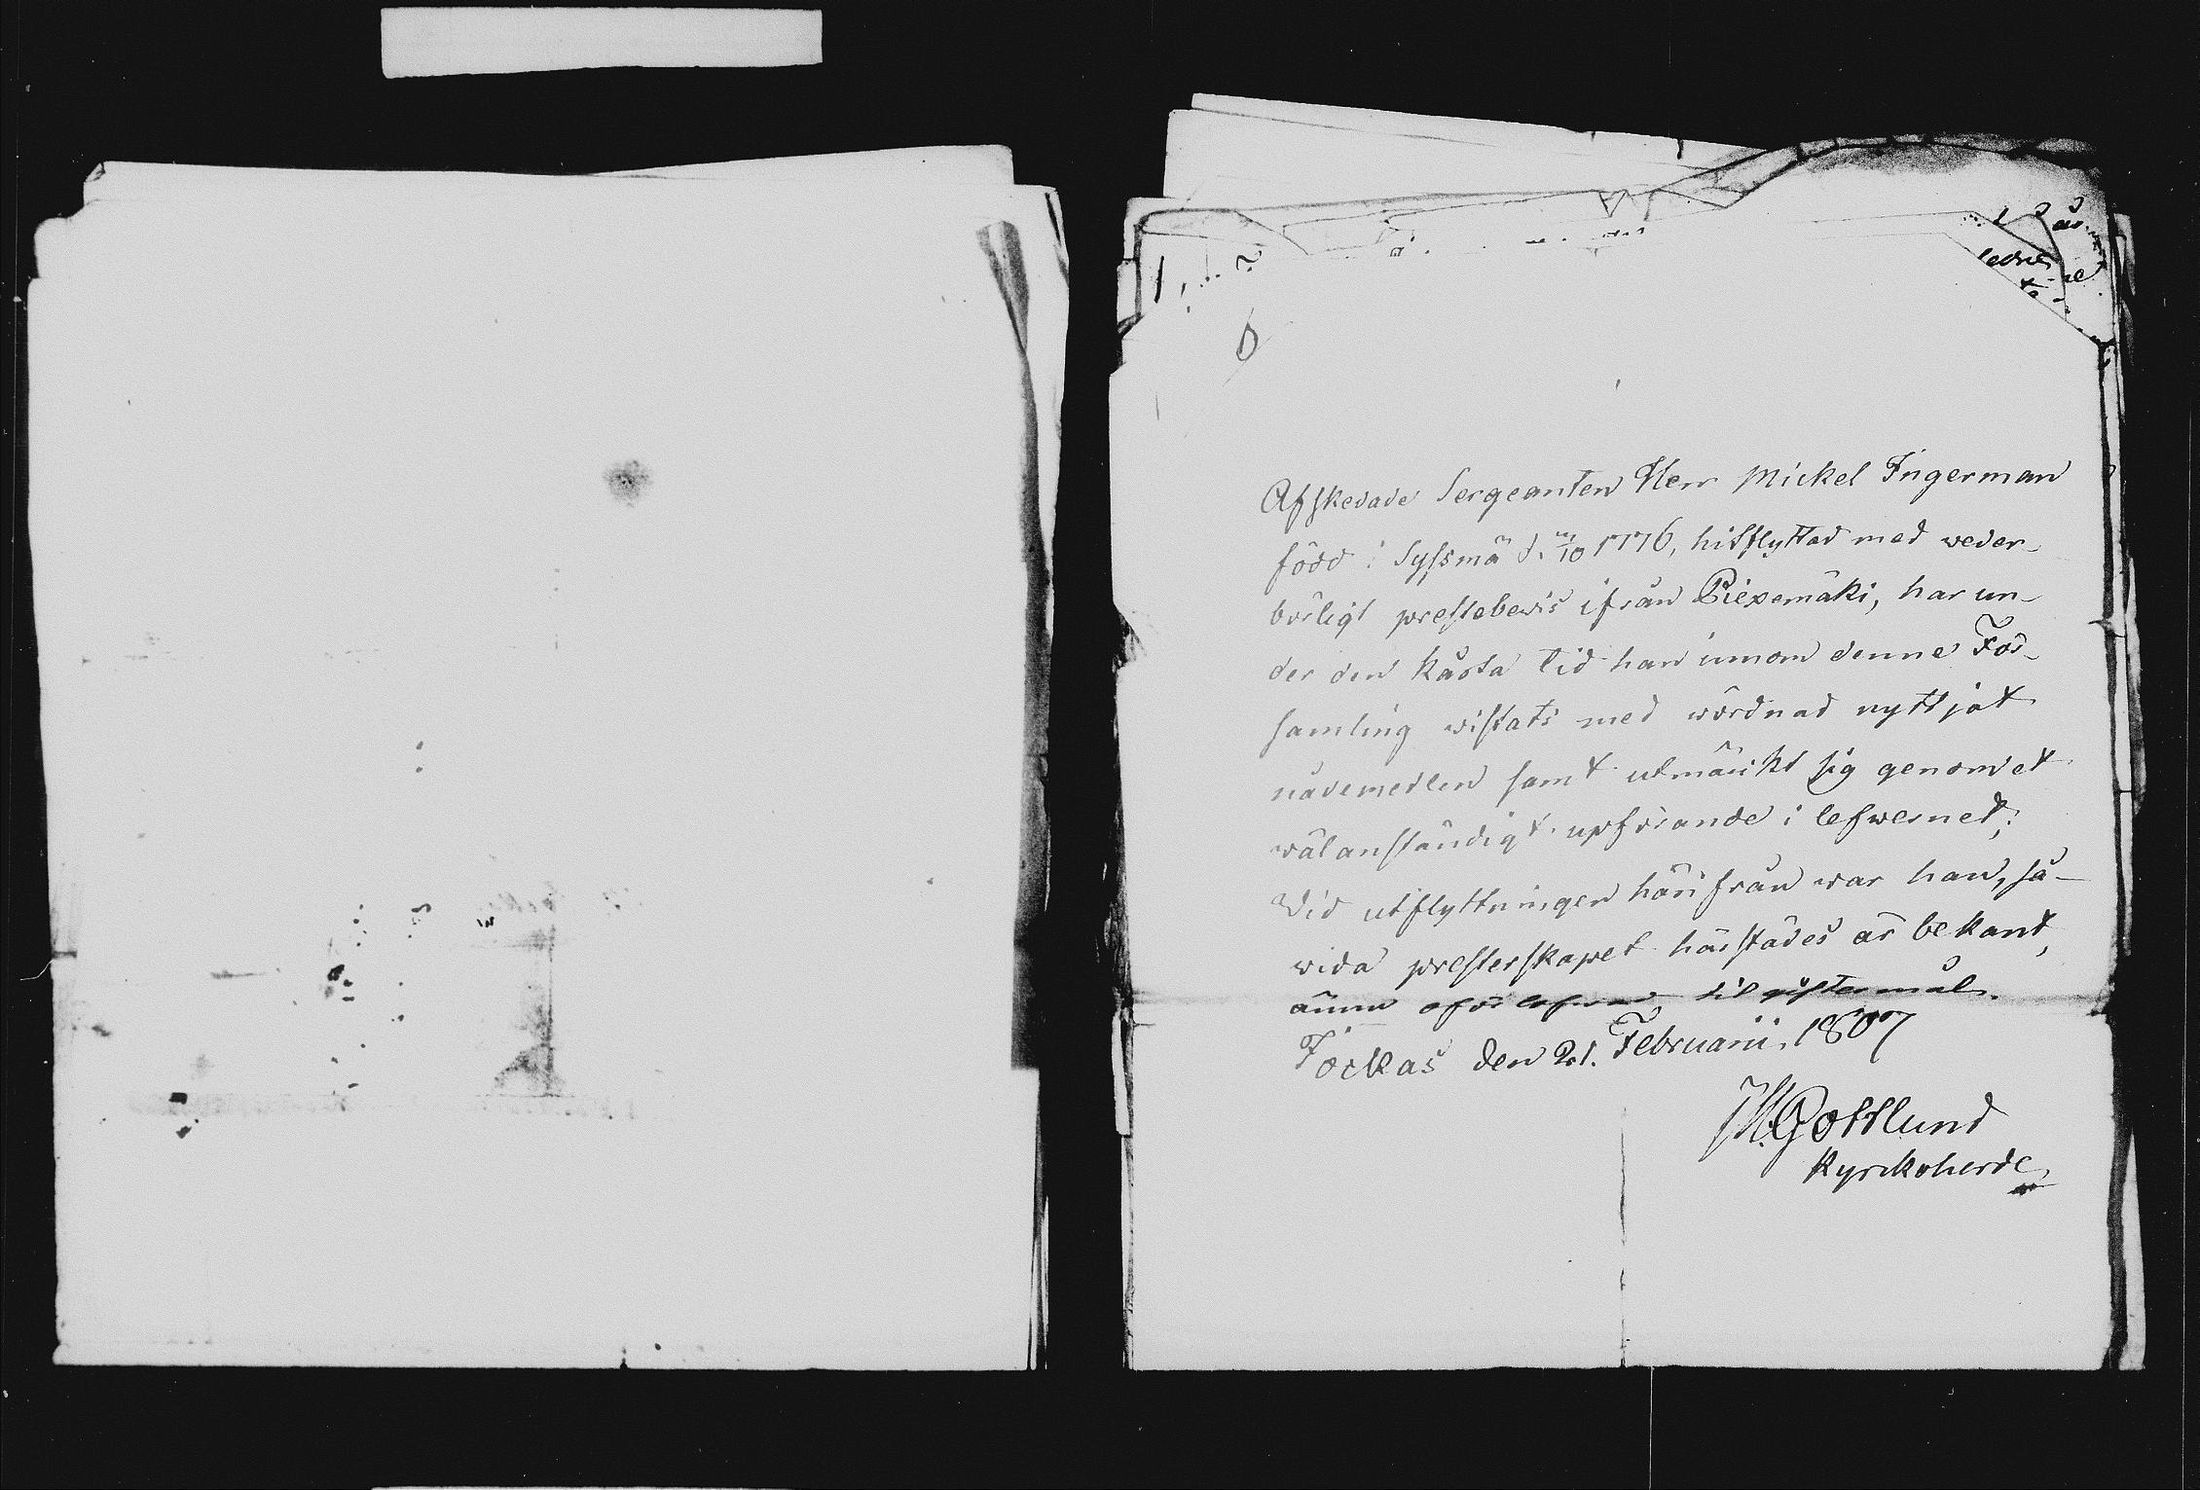 6
Afskedade Sergeanten Herr Mickel Ingerman
född i Syssmä d. 10 1776, hitflyttad med weder-
börligt prestebewis ifrån Piexemäki, har un-
der den korta tid han innom denne För-
samling wistats med wördnad nyttjat
nådemedlen samt utmärkt sig genom et
wälanständigt upförande i lefwernet;
Vid utflyttningen härifrån war han, så-
vida presterskapet härstädes är bekant,
ännu oförlofwad til giftermål.
Jockas den 21. Februarii. 1807
M. Gottlund
Kyrckoherde